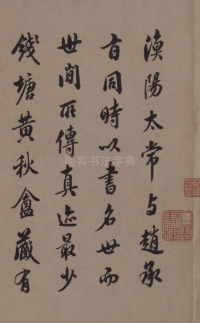 漁陽太常与趙承
旨同時以書名世而
世間所傳真迹最少
錢塘黃秋盦藏有